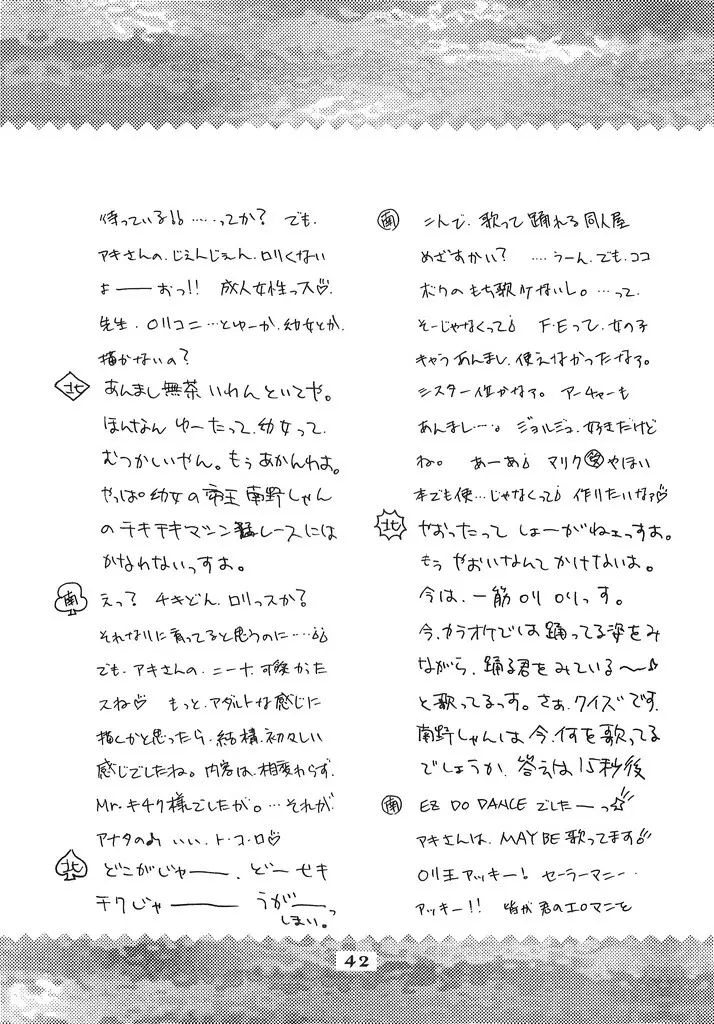 待っているゾ!! ……ってか? でも、
アキさんの、じぇんじぇん、ロリくない
よ――おっ!! 成人女性っス♡
先生、ロリコニ…とゆーか、幼女とか、
描かないの?
北 あんまし無茶いわんといてや。
ほんなん ゆーたって、幼女って、
むつかしいやん。もぅあかんわぁ。
やっぱ幼女の帝王南野しゃん
のチキチキマシン猛レースには
かなわないっすよ。
南 えっ? チキどん、ロリっスか?
それなりに育ってると思うのに……
でも、アキさんの、ニーナ、可愛かった
スね♡ もっと、アダルトな感じに
描くかと思ったら、結構、初々しい
感じでしたね。内容は、相変わらず、
Mr.キチク様でしたが。…それが、
アナタの いい、ト・コ・ロ♡
北 どこがじゃ――、どーせキ
チクじゃ―― うが――っ
しまい。
南 こんで、歌って踊れる同人屋
めざすかい? ……うーん、でも、ココ
ボクのもち歌ハケないし。…って、
そーじゃなくって F.Eって、女の子
キャラあんまし、使えなかったなァ。
シスター位かなァ。アーチャーも
あんまし…。ジョルジュ、好きだけど
ね。 あーあ マリク受やほい
本でも使…じゃなくって 作りたいなァ♡
北 やおったって しょーがねェっすよ。
もぅ やおいなんてかけないよ。
今は、一筋ロリロリっす。
今、カラオケでは踊ってる姿をみ
ながら、踊る君をみている〜♪
と歌ってるっす。さぁ、クイズです、
南野しゃんは今、何を歌ってる
でしょうか、答えは15秒後
南 EZ DO DANCE でしたーっ☆
アキさんは、MAYBE 歌ってます!!
ロリ王アッキー! セーラーマニー、
アッキー!! 皆が君のエロマニを
42